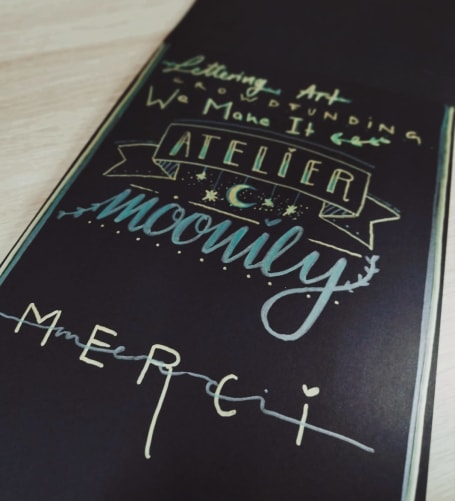 Lettering Art
CROWDFUNDING
We Make It
ATELiER
moonily
MERCi
merci